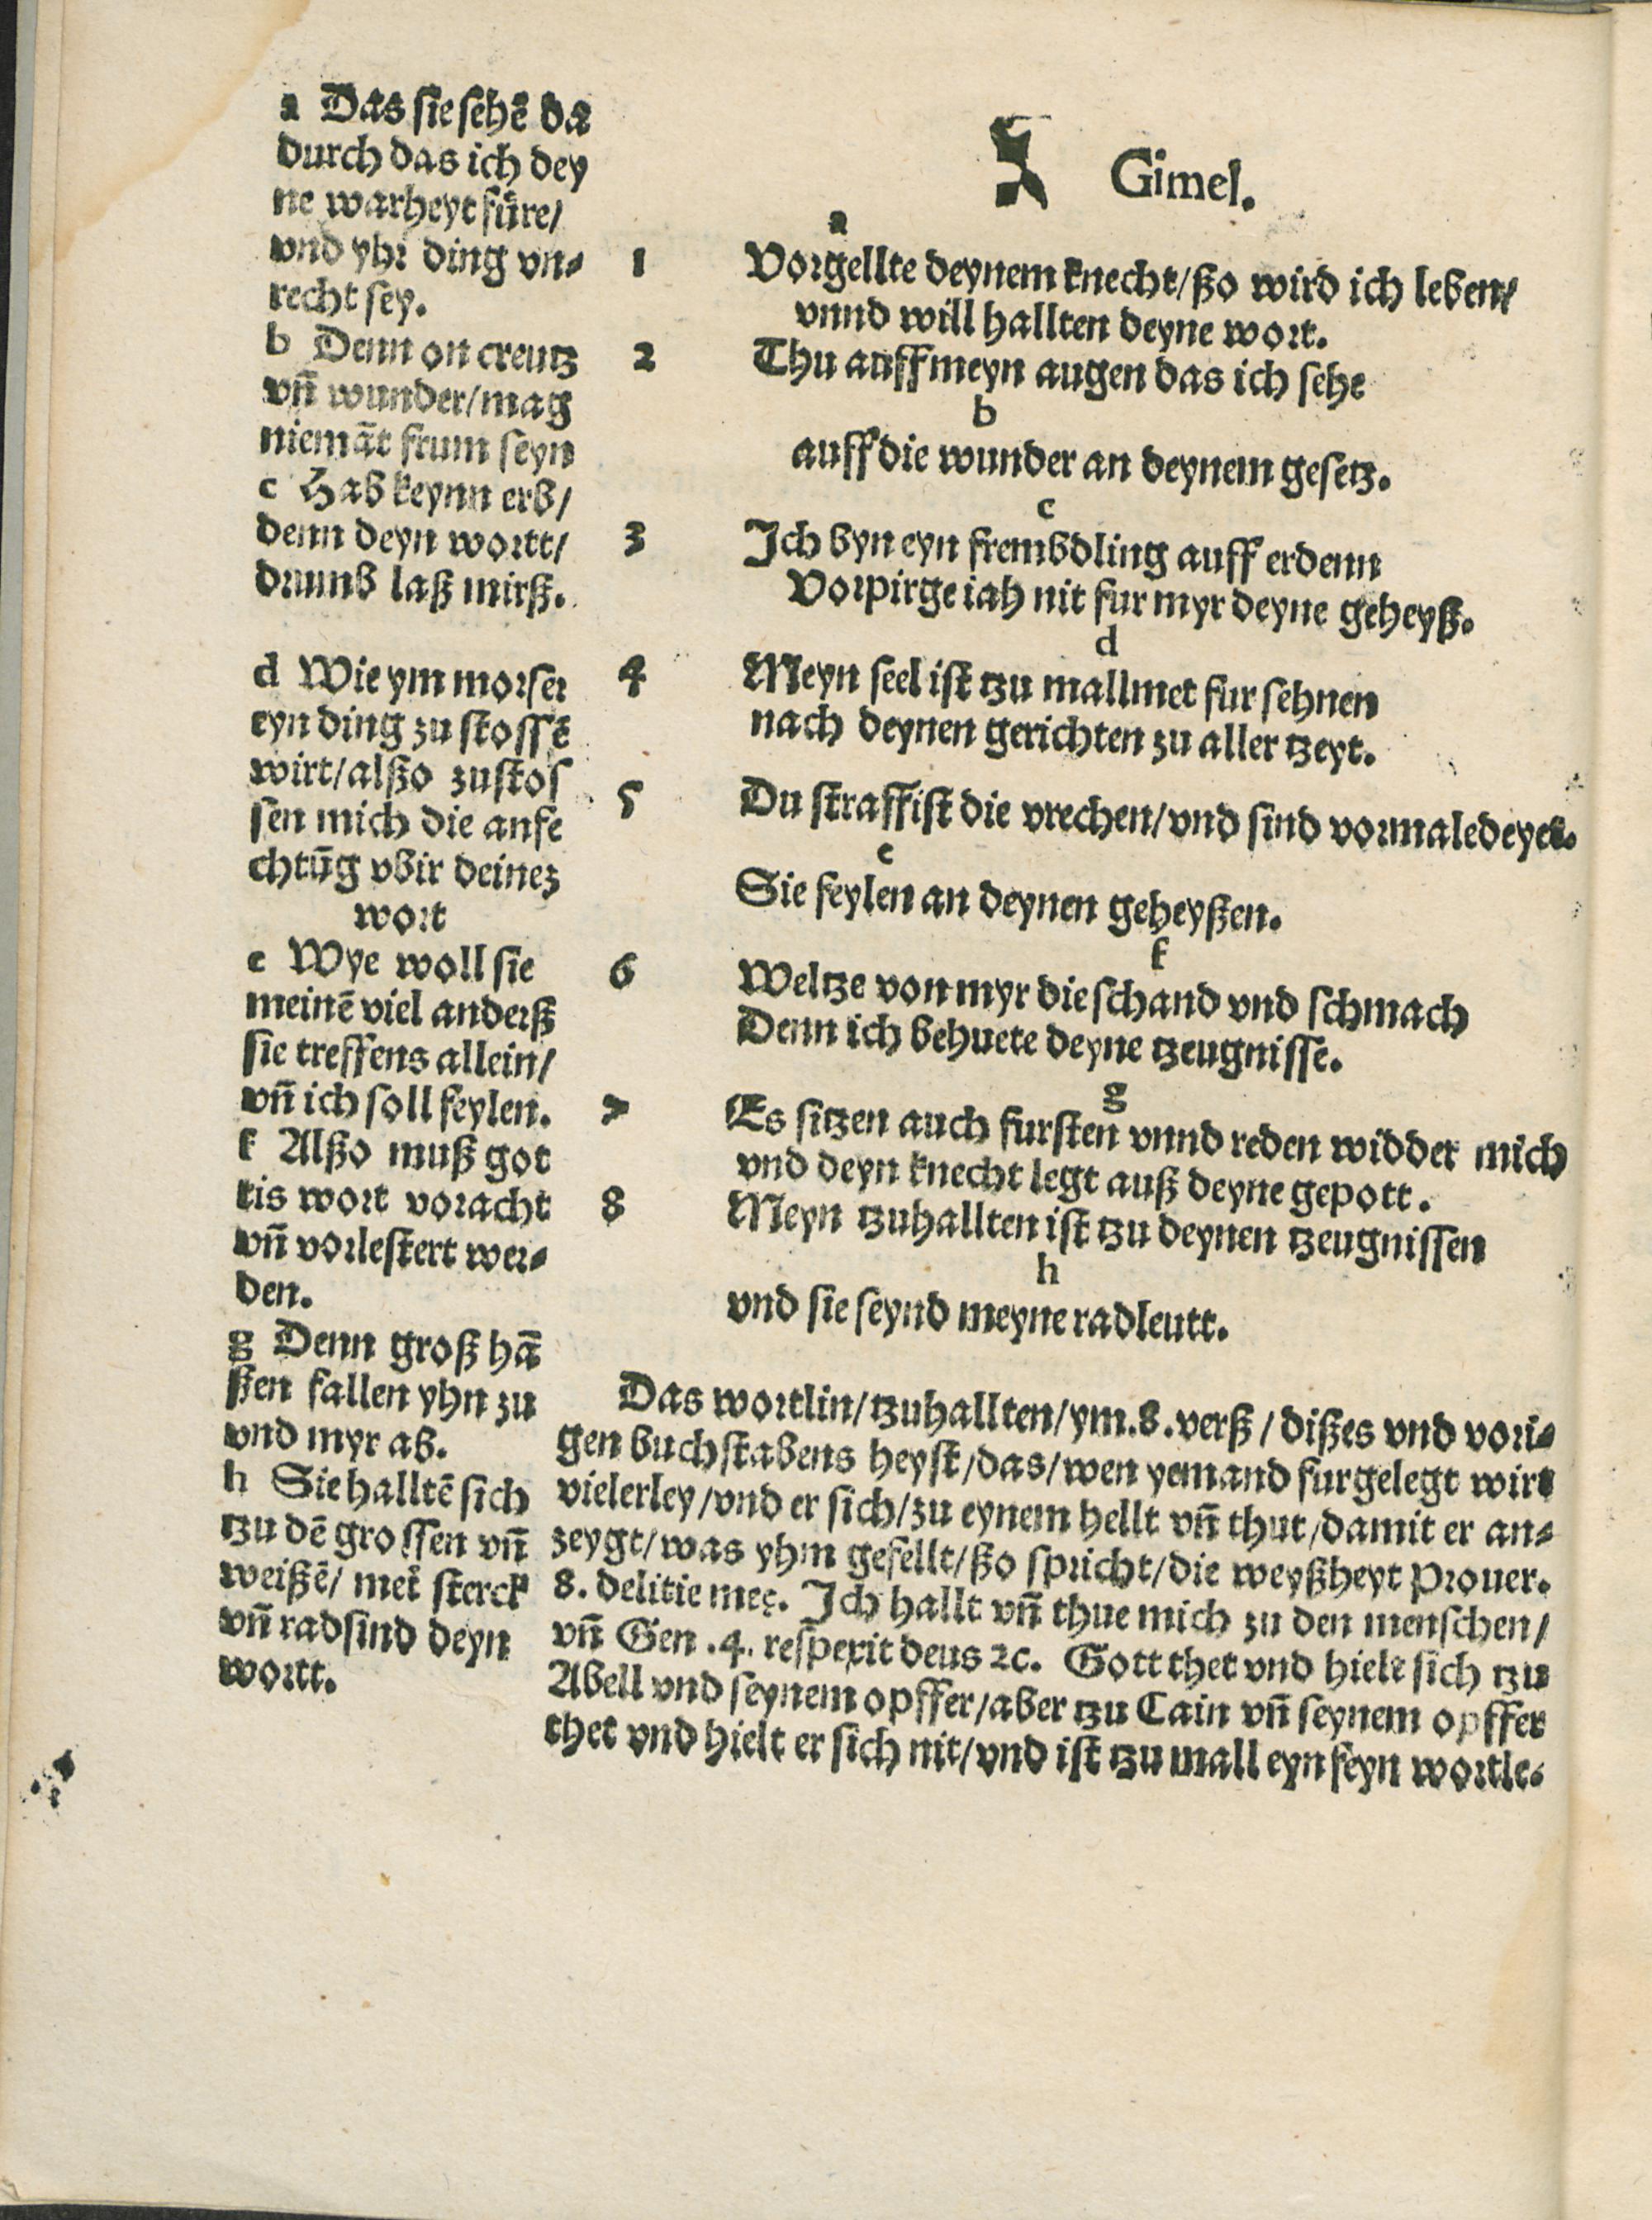 a Das sie sehē da
durch das ich dey
ne warheyt füre/
vnd yhr ding vn⸗
recht sey.
b Denn on creutz
vñ wunder/mag
niemāt frum seyn
c Hab keynn erb/
denn deyn wortt/
drumb laß mirß.
d Wie ym morser
eyn ding zu stossē
wirt/alßo zustos
sen mich die anfe
chtūg vbir deinez
wort
e Wye woll sie
meinē viel anderß
sie treffens allein/
vñ ich soll feylen.
f Alßo muß got
tis wort voracht
vñ vorlestert wer⸗
den.
g Denn groß hā
ßen fallen yhn zu
vnd myr ab.
h Sie halltē sich
tzu dē grossen vñ
weißē/ mei sterck
vñ rad sind deyn
wortt.
ג Gimel.
a
1 Vorgellte deynem knecht/ßo wird ich leben/
vnnd will hallten deyne wort.
2 Thu auff meyn augen das ich sehe
b
auff die wunder an deynem gesetz.
c
3 Ich byn eyn frembdling auff erdenn
Vorpirge iah nit fur myr deyne geheyß.
d
4 Meyn seel ist tzu mallmet fur sehnen
nach deynen gerichten zu aller tzeyt.
5 Du straffist die vrechen/vnd sind vormaledeyet.
e
Sie feylen an deynen geheyßen.
f
6 Weltze von myr die schand vnd schmach
Denn ich behuete deyne tzeugnisse.
g
7 Es sitzen auch fursten vnnd reden widder mich
vnd deyn knecht legt auß deyne gepott.
8 Meyn tzuhallten ist tzu deynen tzeugnissen
h
vnd sie seynd meyne radleutt.
Das wortlin/tzuhallten/ym.8.verß/dißes vnd vori⸗
gen buchstabens heyst/das/wen yemand furgelegt wirt
vielerley/vnd er sich/zu eynem hellt vñ thut/damit er an⸗
zeygt/was yhm gefellt/ßo spricht/die weyßheyt Prouer.
8. delitie meę. Ich hallt vñ thue mich zu den menschen/
vñ Gen .4. respexit deus ꝛc. Gott thet vnd hielt sich tzu
Abell vnd seynem opffer/aber tzu Cain vñ seynem opffer
thet vnd hielt er sich nit/vnd ist tzu mall eyn feyn wortle⸗